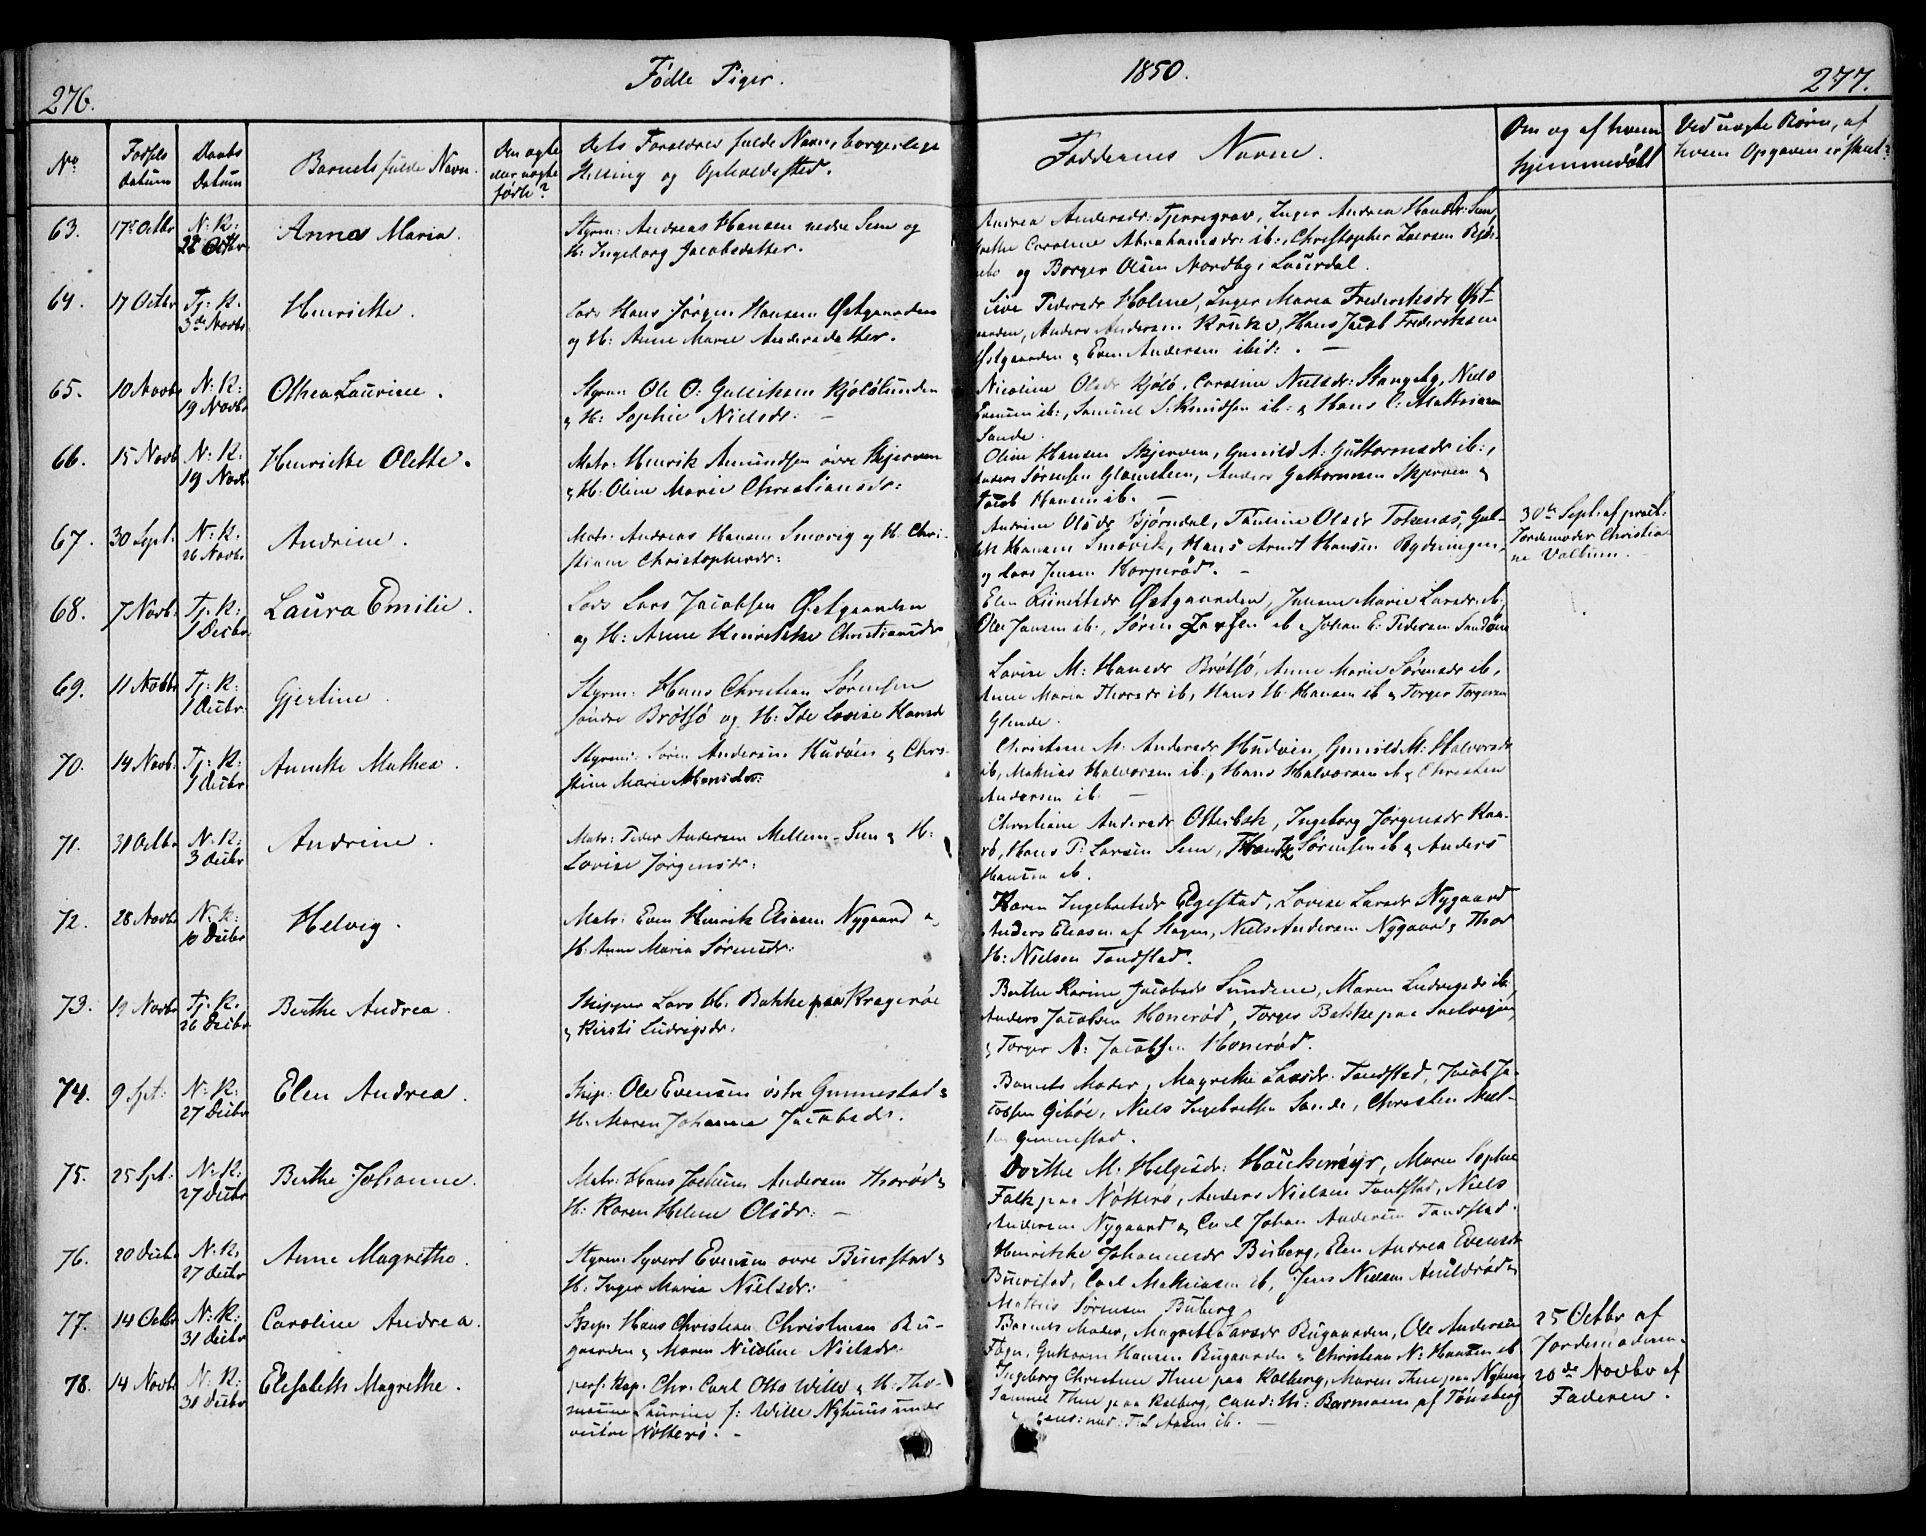 276.
Fødte Piger.
1850.
277.
No
Fødsels datum
Daabs Datum
Barnets fulde Navn.
Om ægte eller uægte født?
Dets Forældres fulde Navn, borgerlige
Stilling og Opholdssted.
Faddernes Navne.
Om og af hvem
hjemmedøbt
Ved uægte Børn, af
hvem Opgaven er skeet?
63.
17de Octbr
N: K:
22 Octbr
Anna Maria.
Styrm: Andreas Hansen nedre Sem og
H: Ingeborg Jacobsdatter.
Andrea Andersdr: Tjerregrav, Inger Andrea Hansdr: Sem,
Caroline Abrahamsdr: ib:, Christopher Iversen
og Borger Olsen Nordby i Laurdal.
64.
17 Octbr
Tj: K.
3de Novbr
Henriette.
Lods Hans Jørgen Hansen Østgaarden
og H: Anne Marie Andersdatter.
Pedersdr Holme, Inger Maria Frederiksdr Øst-
gaarden, Anders Andersen Kruke, Hans Jacob Frederiksen
Østgaarden & Even Andersen ibid:. —
65.
10 Novbr
N: K:
19 Novbr
Othea Laurine.
Styrm: Ole O: Gulliksen Kjølølunden
& H: Sophie Nielsdr: —
Nicoline Olsdr Kjølø, Caroline Nielsdr: Stangeby, Niels
Evensen ib:, Samuel S: Knudsen ib: & Hans C: Mathiasen
Sande.
66.
15 Novb
N: K:
19 Novbr
Henriette Olette.
Matr: Henrik Amundsen øvre Skjerven
& H: Oline Marie Christiansdr:
Oline Hansen Skjerven, Gunild A: Guttormsdr ib:,
Anders Sørensen Glomstein, Anders Guttormsen Skjerven &
Jacob Hansen ib. —
67.
30 Sept:
N: K:
26 Novbr
Andrine.
Matr: Andreas Hansen Smørvig & H: Chri-
stiane Christophersdr:
Andrine Olsdr Bjørndal, Pauline Olsdr Tokenæs, Gul-
Hansen Smøvik, Hans Arndt Hansen Rydningen,
og Lars Jensen Korperød. —
30te Sept: af pract:
Jordemoder Christia-
ne Valtum. —
68.
7 Novb:
Tj: K:
1 Decbr
Laura Emilie.
Lods Lars Jacobsen Østgaarden
og H: Anne Henrikke Christiansdr
Elen Østgaarden, Juliane Marie Larsdr ib,
Ole Jansen ib:, Søren ib & Johan E: Pedersen Sandøen
69.
11 Novbr
Tj: K:
1 Decbr
Gjertine.
Styrm: Hans Christian Sørensen
søndre Brøtsø og H: Ide Lovise Hansdr
Lovise M: Hansdr Brøtsø, Anne Marie Sørensdr ib,
Anne Maria Thorsdr ib, Hans H: Hansen ib & Torger Torgersen
Glende.
70.
14 Novb:
Tj: K:
1 Decbr
Annette Mathea.
Styrm: Søren Andersen Hudøen & Chri-
stine Marie
Christine M: Andersdr Hudøen, Gunild M: Halvorsdr
ib, Mathias Halvorsen ib:, Hans Halvorsen ib & Christen
Andersen ib. —
71.
31 Octbr
N: K:
3 Decbr
Andrine.
Matr: Peder Andersen Mellem-Sem & H:
Lovise Jørgensdr:
Christiane Andersdr Otterbek, Ingeborg Jørgensdr
Hans P: Larsen Sem, Sørensen ib & Anders
Hansen ib.
72.
28 Novbr
N: K:
10 Decbr
Helvig.
Matr: Even Henrik Eliasen Nygaard &
H: Anne Maria Sørensdr:
Karen Ingebretsdr Elgestad, Lovise Larsdr Nygaard
Anders Eliasen af Slagen, Niels Andersen Nygaard & Thor
H: Nielsen Tandstad.
73.
19 Novbr
Tj: K.
26 Decbr
Berthe Andrea.
Skipper Lars H. Bakke paa Kragerøe
& Kirsti Ludvigsdr.
Berthe Karine Jacobsdr Sundene, Maren Ludvigsdr ib,
Anders Jacobsen Honerød, Torger Bakke paa Svelvigen,
& Torger A: Jacobsen Honerød.
74.
9 Spt:
N: K:
27 Decbr
Elen Andrea.
Skip: Ole Evensen østre Gunnestad &
H: Maren Johanne Jacobsdr.
Barnets Moder, Magrethe Larsdr. Tandstad, Jacob Ja-
cobsen Gibøe, Niels Ingebretsen Sande, Christen Niel-
sen Gunnestad.
75.
25 Spt:
N: K:
27 Decbr
Berthe Johanne.
Matr: Hans Jochum Andersen Thorød &
H: Karen Helene Olsdr: —
Dorthe M: Helgesdr: Haukemyr, Maren Sophie
Falk paa Nøtterø, Anders Nielsen Tandstad, Niels
Andersen Nygaard & Carl Johan Andersen Tandstad.
76.
20 Decbr
N: K.
27 Decbr
Anne Magrethe.
Styrm: Syvert Evensen øvre Buerstad &
H: Inger Maria Nielsdr:
Henrikke Johannesdr Buberg, Elen Andrea Evensdr
Buerstad, Carl Mathiasen ib, Jens Nielsen &
Mathis Sørensen Buberg
77.
14 Octbr
N: K:
31 Decbr
Caroline Andrea.
Skip: Hans Christian Christensen Bu-
gaarden & Maren Nicoline Nielsdr.
Barnets Moder, Magrethe Larsdr Bugaarden, Ole Andersen
Guttorm Hansen Bugaarden & Christian N: Hansen ib
25 Octbr af
Jordemoderen.
78.
14 Novbr
N: K:
31 Decbr
Elisabeth Magrethe.
pers. Kap. Chr. Carl Otto Wille & H: Tho-
Laurine f: Wille Nyhuus under
vestre Nøtterø. —
Ingeborg Christine Thue paa Kalberg, Maren Thue paa Nyhuus
Samuel Thue paa Kalberg, Cand: Bormann af Tønsberg
& T: S ib. —
20de Novbr af
Faderen.